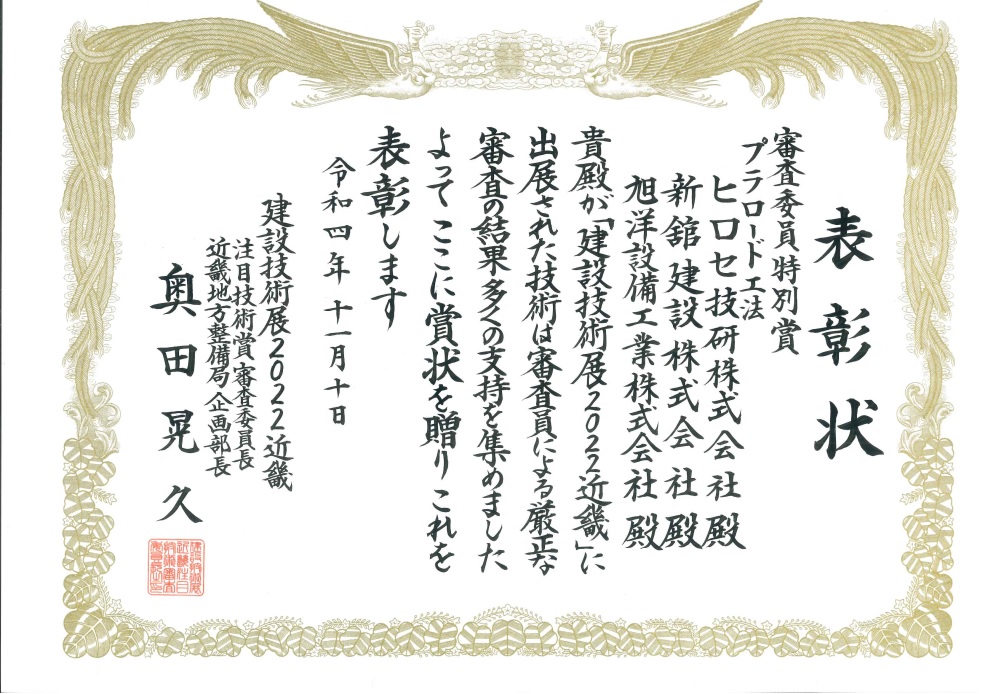 表彰状
審査委員特別賞
プラロード工法
ヒロセ技研株式会社殿
新舘建設株式会社殿
旭洋設備工業株式会社殿
貴殿が「建設技術展2022近畿」に
出展された技術は審査員による厳正な
審査の結果多くの支持を集めました
よってここに賞状を贈りこれを
表彰します
令和四年十一月十日
建設技術展2022近畿
注目技術賞審査委員長
近畿地方整備局企画部長
奥田晃久